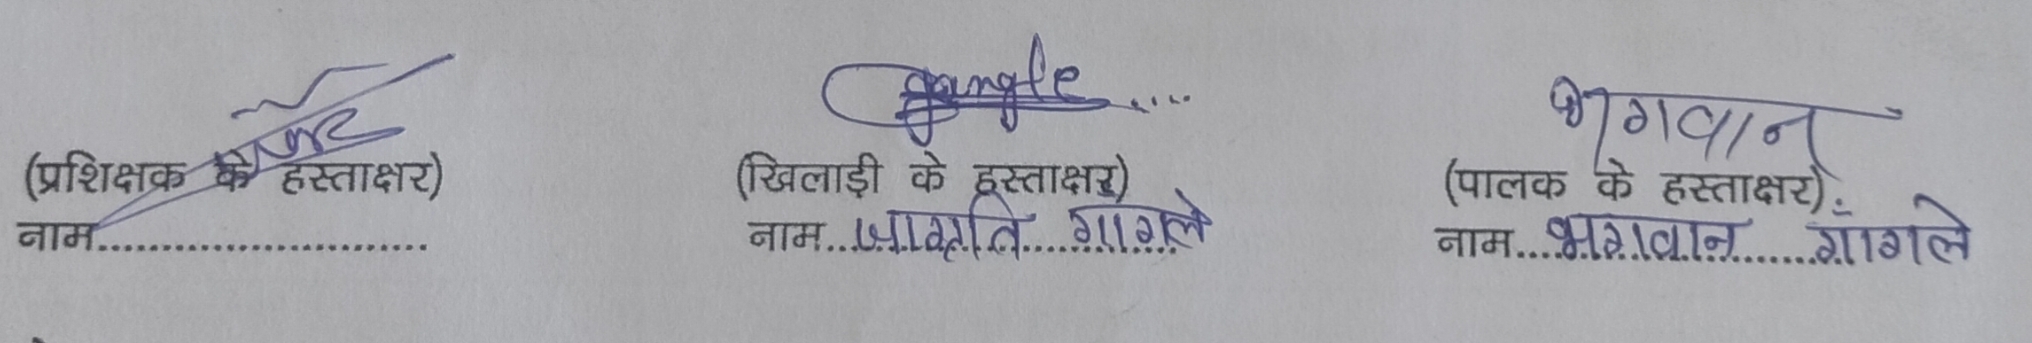 gangle....
भगवान
(प्रशिक्षक के हस्ताक्षर) (खिलाड़ी के हस्ताक्षर) (पालक के हस्ताक्षर)
नाम.......................... नाम...जागृति....गांगले नाम....भगवान.......गांगले